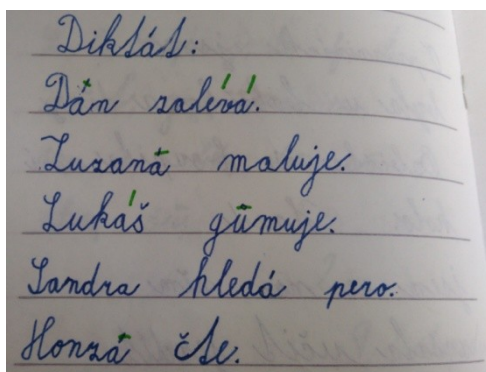 Diktát:
Dán zalévá.
Zuzaná maluje.
Lukáš gúmuje.
Sandra hledá pero.
Honzá čte.